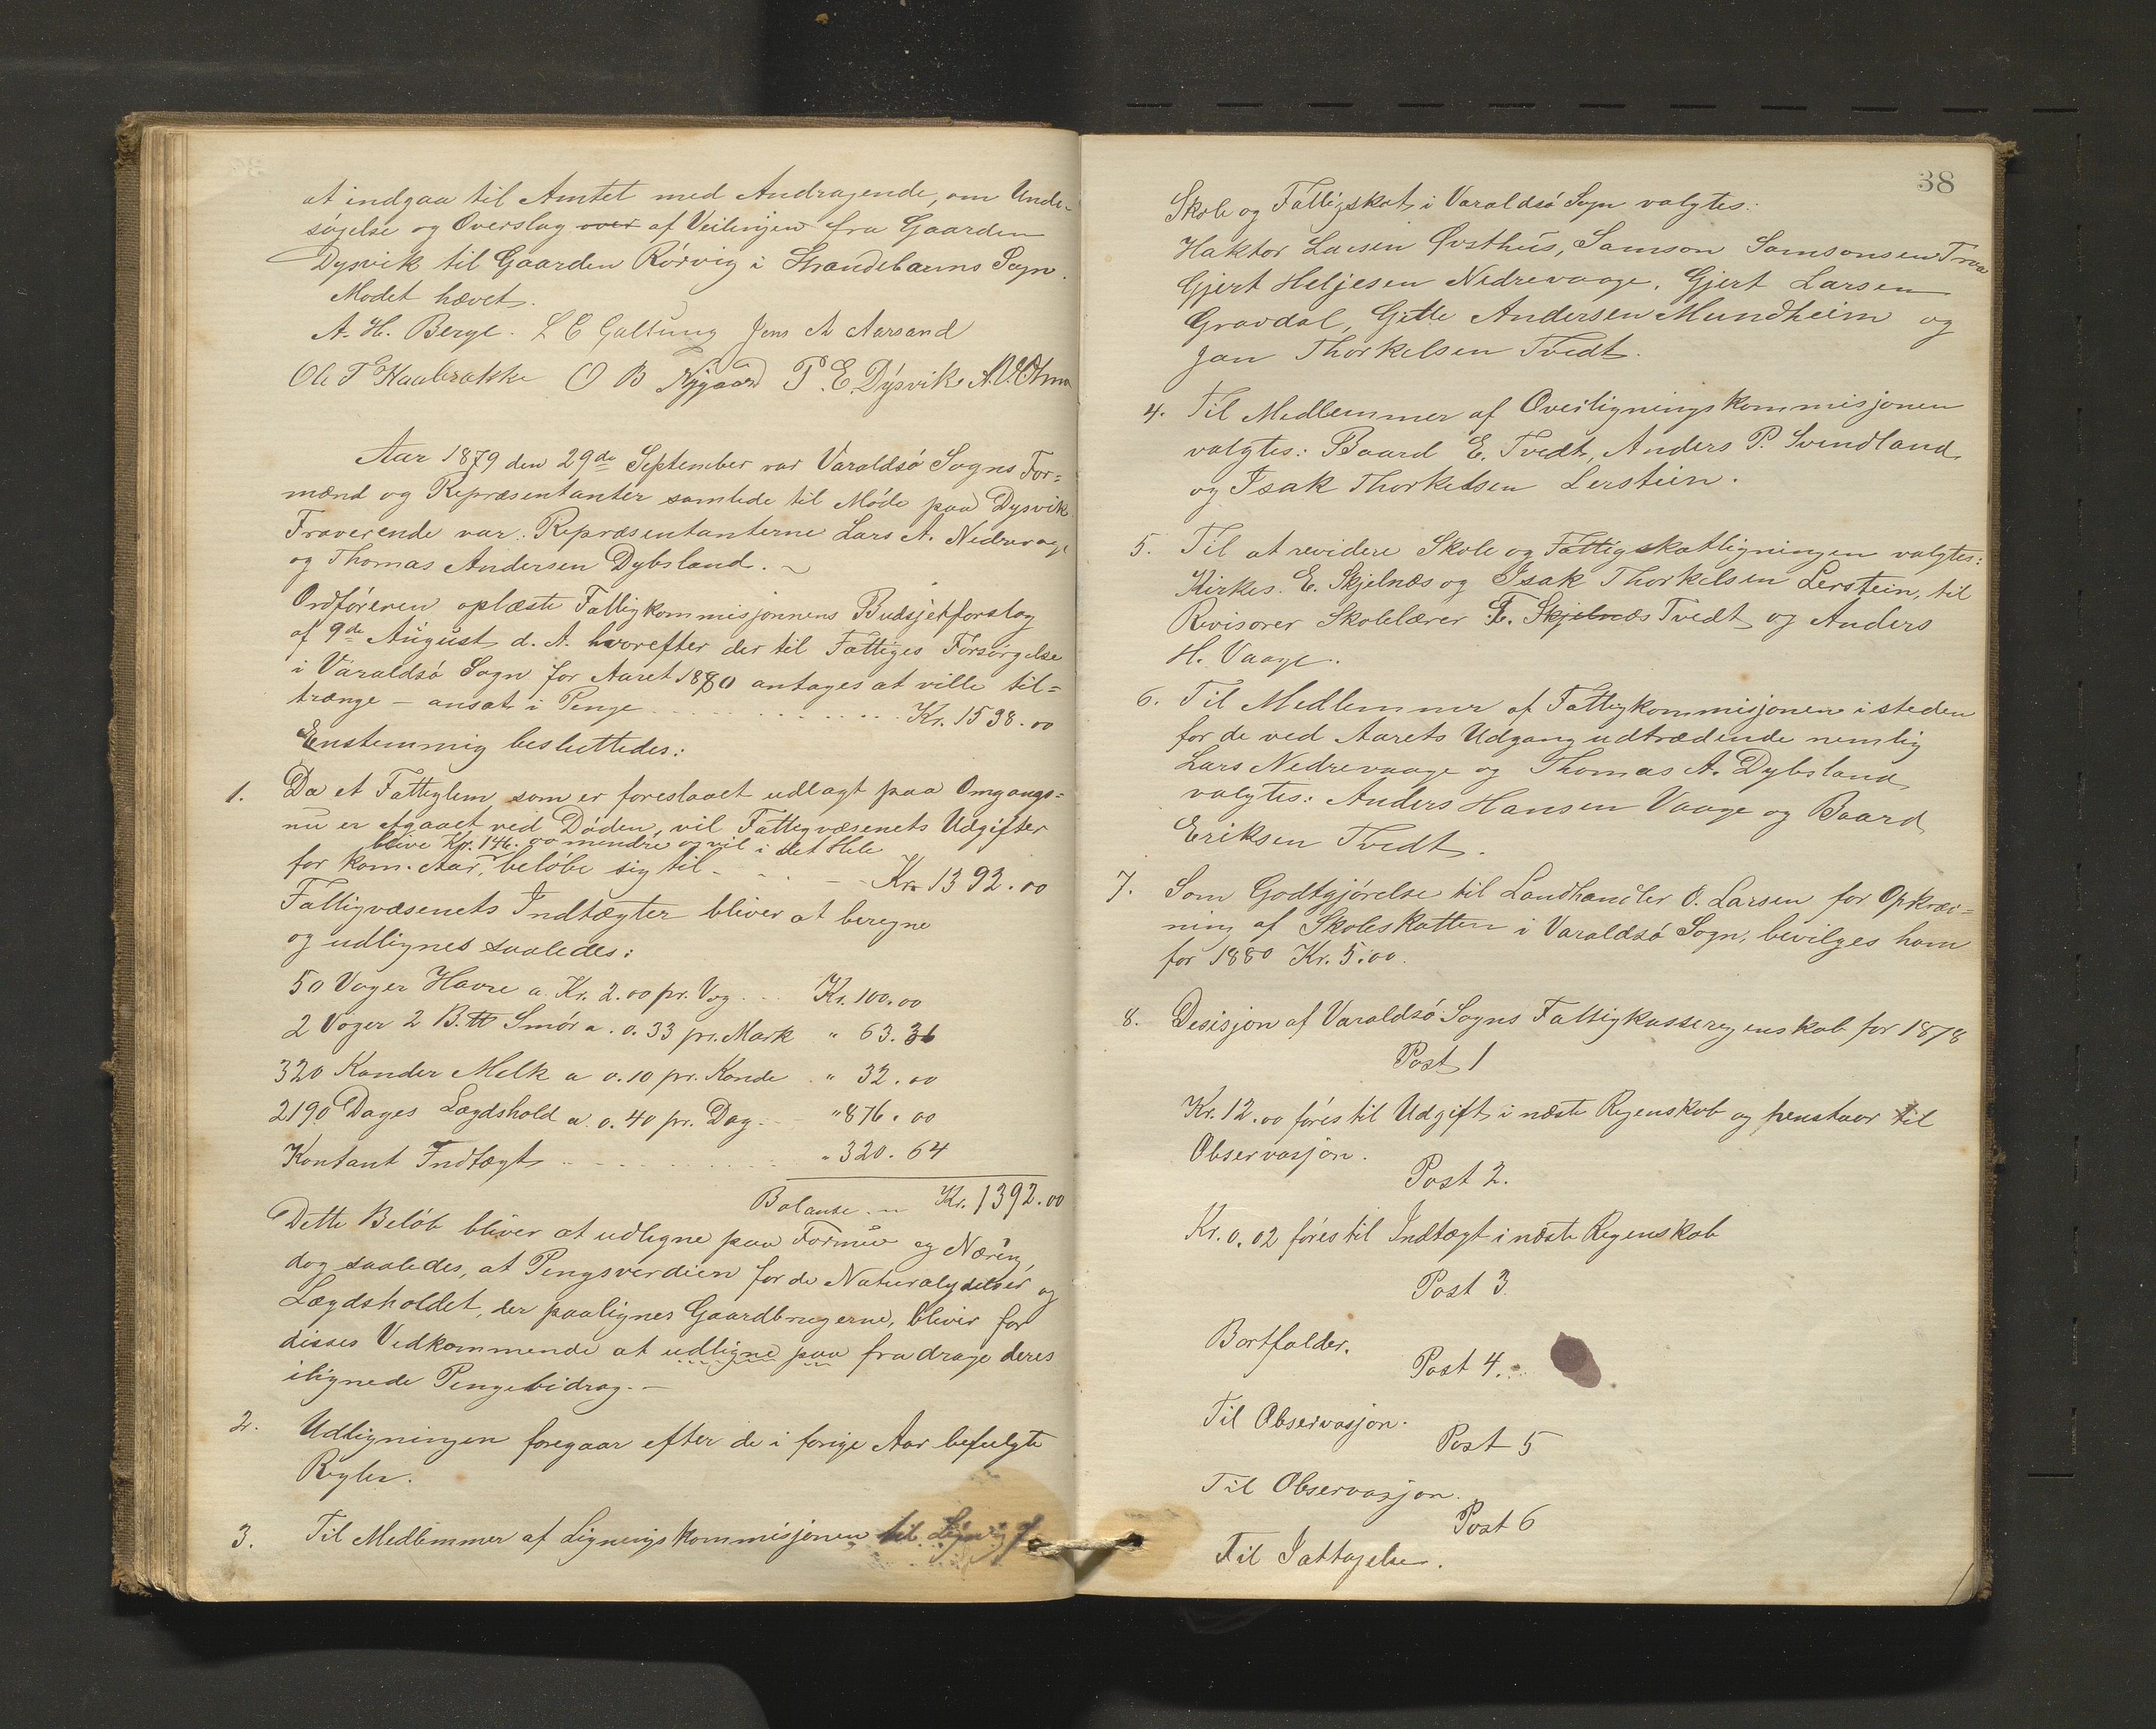 at indgaa til Amtet med Andragende, om Unde-
søgelse og Overslag over af Veilinjen fra Gaarden
Dysvik til Gaarden Rórvig i Strandebarms Sogn.
Modet hævet.
A. H. Berge. L E Galtung Jens A Aarsand
Ole T Haabrække O B Nygaard P. E. Dysvik
Aar 1879 den 29de September var Varaldsó Sogns For=
mænd og Repræsentanter samlede til Móde paa Dysvik.
Fraverende var: Repræsentanterne Lars A. Nedrevaage
og Thomas Andersen Dybsland. ~
Ordfóreren oplæste Fattigkommisjonnens Budsjetforslag
af 9de August d. A. hvorefter der til Fattiges Fórsórgelse
i Varaldsó Sogn for Aaret 1880 antages at ville til=
trænge - ansat i Penge Kr. 1538.00
Enstemmig besluttedes:
1. Da et Fattiglem som er foreslaaet udlagt paa Omgangs=
nu er afgaaet ved Dóden, vil Fattigvæsenets Udgifter
blive Kr. 146.00 mendre og vil i det Hele
for kom. Aar, belóbe sig til - Kr. 1392.00
Fattigvæsenets Indtægter bliver at beregne
og udlignes saaledes:
50 Vager Havre a Kr. 2.00 pr. Vog. Kr. 100.00
2 Voger 2 B. tt Smór a. 0.33 pr. Mark " 63.36
320 Kander Melk a 0.10 pr. Kande " 32.00
2190 Dages Lægdshold a 0.40 pr. Dag " 876.00
Kontant Indtægt " 320.64
Balanse Kr. 1392.00
Dette Belób bliver at udligne paa Formue og Næring,
dog saaledes, at Pengsverdien for de Naturalydelser og
Lægdsholdet, der paalignes Gaardbrugerne, blivir for
disses Vedkommende at udligne paa fradrage deres
ilignede Pengebidrag. -
2. Udligningen foregaar efter de i forige Aar befulgte
Regler.
3. Til Medlemmer af Ligningskommisjonen til Ligning af
38
Skole og Fattigskat i Varaldsó Sogn valgtes:
Haktor Larsen Øvsthus, Samson Samsonsen Traa
Gjert Heljesen Nedrevaage, Gjert Larsen
Gravdal, Gitle Andersen Mundheim og
Jan Thorkelsen Tvedt.
4. Til Medlemmer af Overligningskommisjonen
valgtes: Baard E. Tvedt, Anders P. Svendland
og Isak Thorkelsen Lerstein.
5. Til at revidere Skole og Fattigskatligningen valgtes:
Kirkes. E. Skjelnæs og Isak Thorkelsen Lerstein, til
Revisorer Skolelærer T. Skjelnæs Tvedt og Anders
H. Vaage.
6. Til Medlemmer af Fattigkommisjonen isteden
for de ved Aarets Udgang udtrædende nemlig
Lars Nedrevaage og Thomas A. Dybsland
valgtes: Anders Hansen Vaage og Baard
Eriksen Tvedt.
7. Som Godtgjórelse til Landhandler O. Larsen for Opkræv=
ning af Skoleskatten i Varaldsó Sogn, bevilges ham
for 1880 Kr. 5.00.
8. Desisjon af Varaldsó Sogns Fattigkasseregenskab for 1878
Post 1
Kr. 12.00 fóres til Udgift i næste Regenskab og henstaar til
Observasjon.
Post 2.
Kr. 0.02 fóres til Indtægt i næste Regenskab
Post 3
Bortfalder.
Post 4.
Til Observasjon.
Post 5
Til Observasjon.
Post 6
Til Iattagelse.